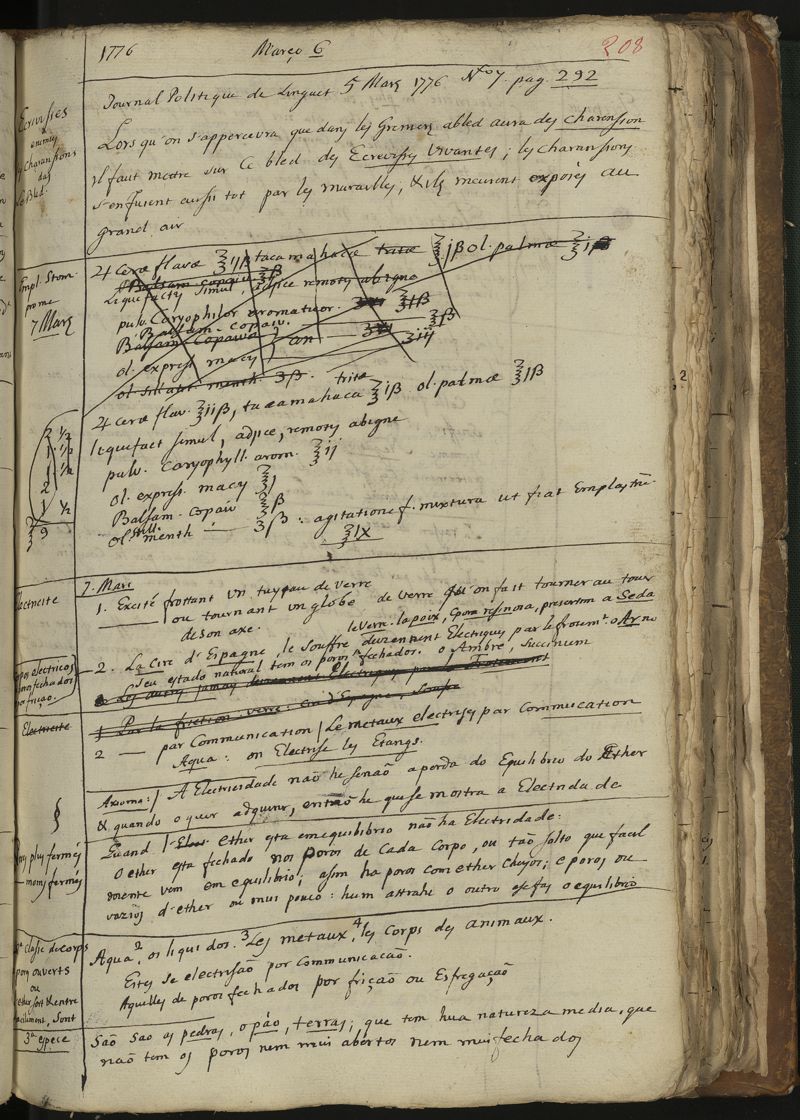 1776 Março 6 208
Journal Politique de Linguet 5 Mars 1776 Nº 7. pag 292
Ecrevisses
&
ennemis
des Charansons
das
Le Bled.
Lors qu'on s'appercevra que dans les Greniers a bled aura des charension
il faut metre sur Ce bled des Ecrevisses Vivantes; les Charanssons
s'enfuient aussi tot par les murailles, & ils meurent exposés au
grand air
Empl. Stom.
prome
7 Mars
♃ Ceræ flavæ ℥ijß tacamahacæ tritæ ℥jß ol. palmæ ℥jß
Balsam copaiv. ℥ß
Liquefacty simul, adjice remoty ab igne
pulv. Caryophilor aromaticor. ℥jß
Balsam. Copaiv.
Balsam Copaivæ } an ℥ß
ol. express macy ʒiij
ol. still. menth ʒß.
♃ Ceræ flav. ℥ijß, tacamahaca tritæ ℥jß ol. palmæ ℥jß
liquefact simul, adjice, remoty ab igne
pulv. Caryophyll. arom. ℥ij
ol. express. macy ℥j
Balsam. Copaiv ℥ß
ol. still. menth — ʒß. agitatione f. mixtura ut fiat Emplastrū.
℥ix
2 1/2
1 1/2
1 1/2
2
1
1/2
℥ 9
Electricité
7. Mars
1. Excité frottant un tuyau de verre
ou tournant un globe de verre qu'on fait tourner au tour
de son axe.
le verre. la poix, Goma resinosa, presentem a Seda
2. La Cire d'Espagne, le Souffre deviennent Electriques par le frotemt. o Ar no
Seu estado natural tem os poros fechados. o Ambre, Succinum
Corpos electricos
poros fechados
por fricção.
Les autres jamais deviennent Electriques par le frotement
Electricité
1 Par la friction. verre: Cire d'Espagne, Soufre
2 — par Communication / Le metaux electrisez par Communication
Aqua: on Electrise les Etangs.
Axioma:/ A Electricidade não he senão a perda do Equilibrio do Ether
& quando o quer adquirir, então he que se mostra a Electricidade
§
Quand l'Ether esta em equilibrio não ha Electricidade:
O ether esta fechado nos poros de Cada Corpo, ou tão solto que facil
mente vem em equilibrio; assim ha poros com ether cheyos; e poros ou
vazios d'ether ou mui pouco: hum attrahe o outro e se faz o equilibrio
plus fermés
moins fermés
2a classe de corps
pores ouverts
ou
l'ether sort & entre
facilement, sont
Aqua, 2 os liquidos. 3 Les metaux, 4 les Corps des animaux.
Estes se electrisão por Communicacão.
Aquelles de poros fechados por fricção ou Esfregação
3a espece
São são as pedras, o páo, terras; que tem hua natureza media, que
não tem os poros nem mui abertos nem mui fechados